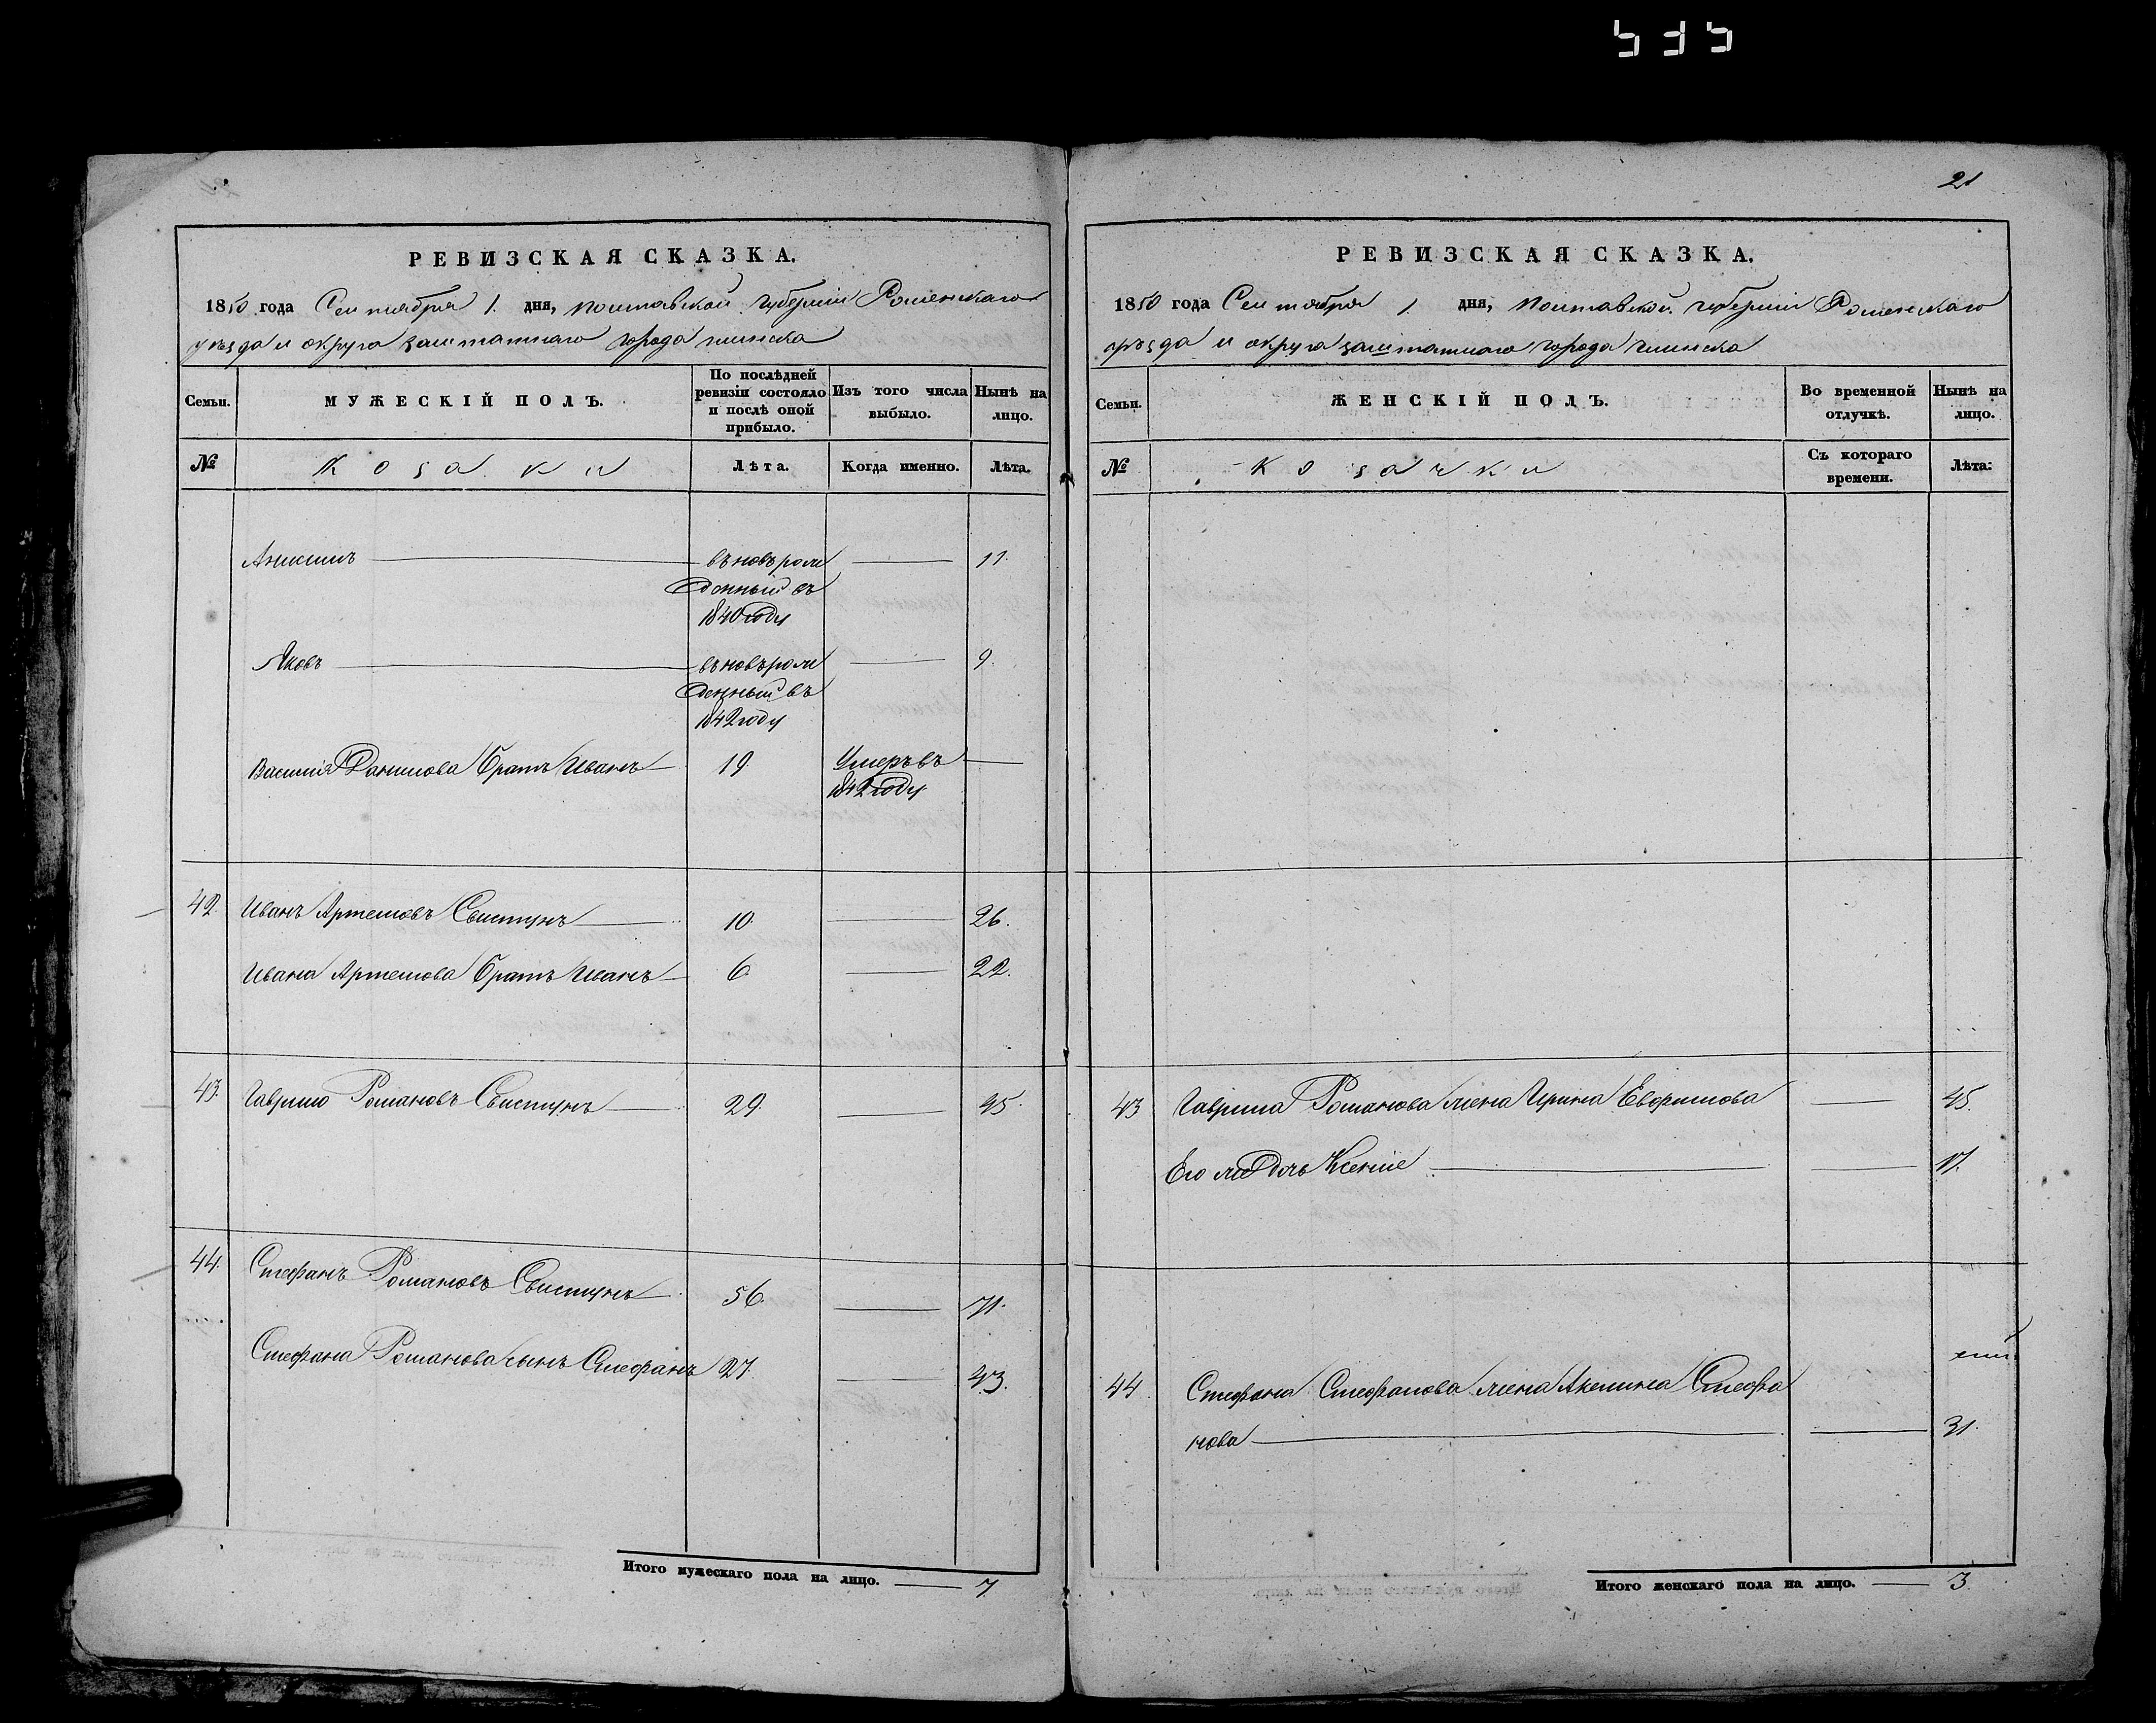 535
21
РЕВИЗСКАЯ СКАЗКА.
1850 года Сентября 1. дня, Полтавской губернии Роменскаго
уѣзда и округа заштатнаго города Глинска
Семьи.
МУЖЕСКІЙ ПОЛЪ.
По послѣдней ревизіи состояло и послѣ оной прибыло.
Изъ того числа выбыло.
Нынѣ на лицо.
№
Козаки
Лѣта.
Когда именно.
Лѣта.
Анисимъ — въновърож — 11.
денный въ
1840 году
Яковъ — въновърож — 9.
денный въ
1842 году
Василія Данилова братъ Иванъ — 19 Умеръ въ —
1842 году
42. Иванъ Артемовъ Свистунъ — 10. — 26.
Ивана Артемова братъ Иванъ — 6. — 22.
43. Гаврило Романовъ Свистунъ — 29. — 45.
44. Стефанъ Романовъ Свистунъ — 56. — 71.
Стефана Романова сынъ Стефанъ 27. — 43.
Итого мужескаго пола на лицо. — 7.
РЕВИЗСКАЯ СКАЗКА.
1850 года Сентября 1. дня, Полтавской губерніи Роменскаго
уѣзда и округа заштатнаго города Глинска
Семьи.
ЖЕНСКІЙ ПОЛЪ.
Во временной отлучкѣ.
Нынѣ на лицо.
№
Козачки
Съ котораго времени.
Лѣта.
43 Гаврила Романова жена Ирина Евфимова — 45.
Его же дочь Ксенiе — — 17.
44. Стефана Стефанова жена Акелина Стефа
нова — — 31.
Итого женскаго пола на лицо. — 3.